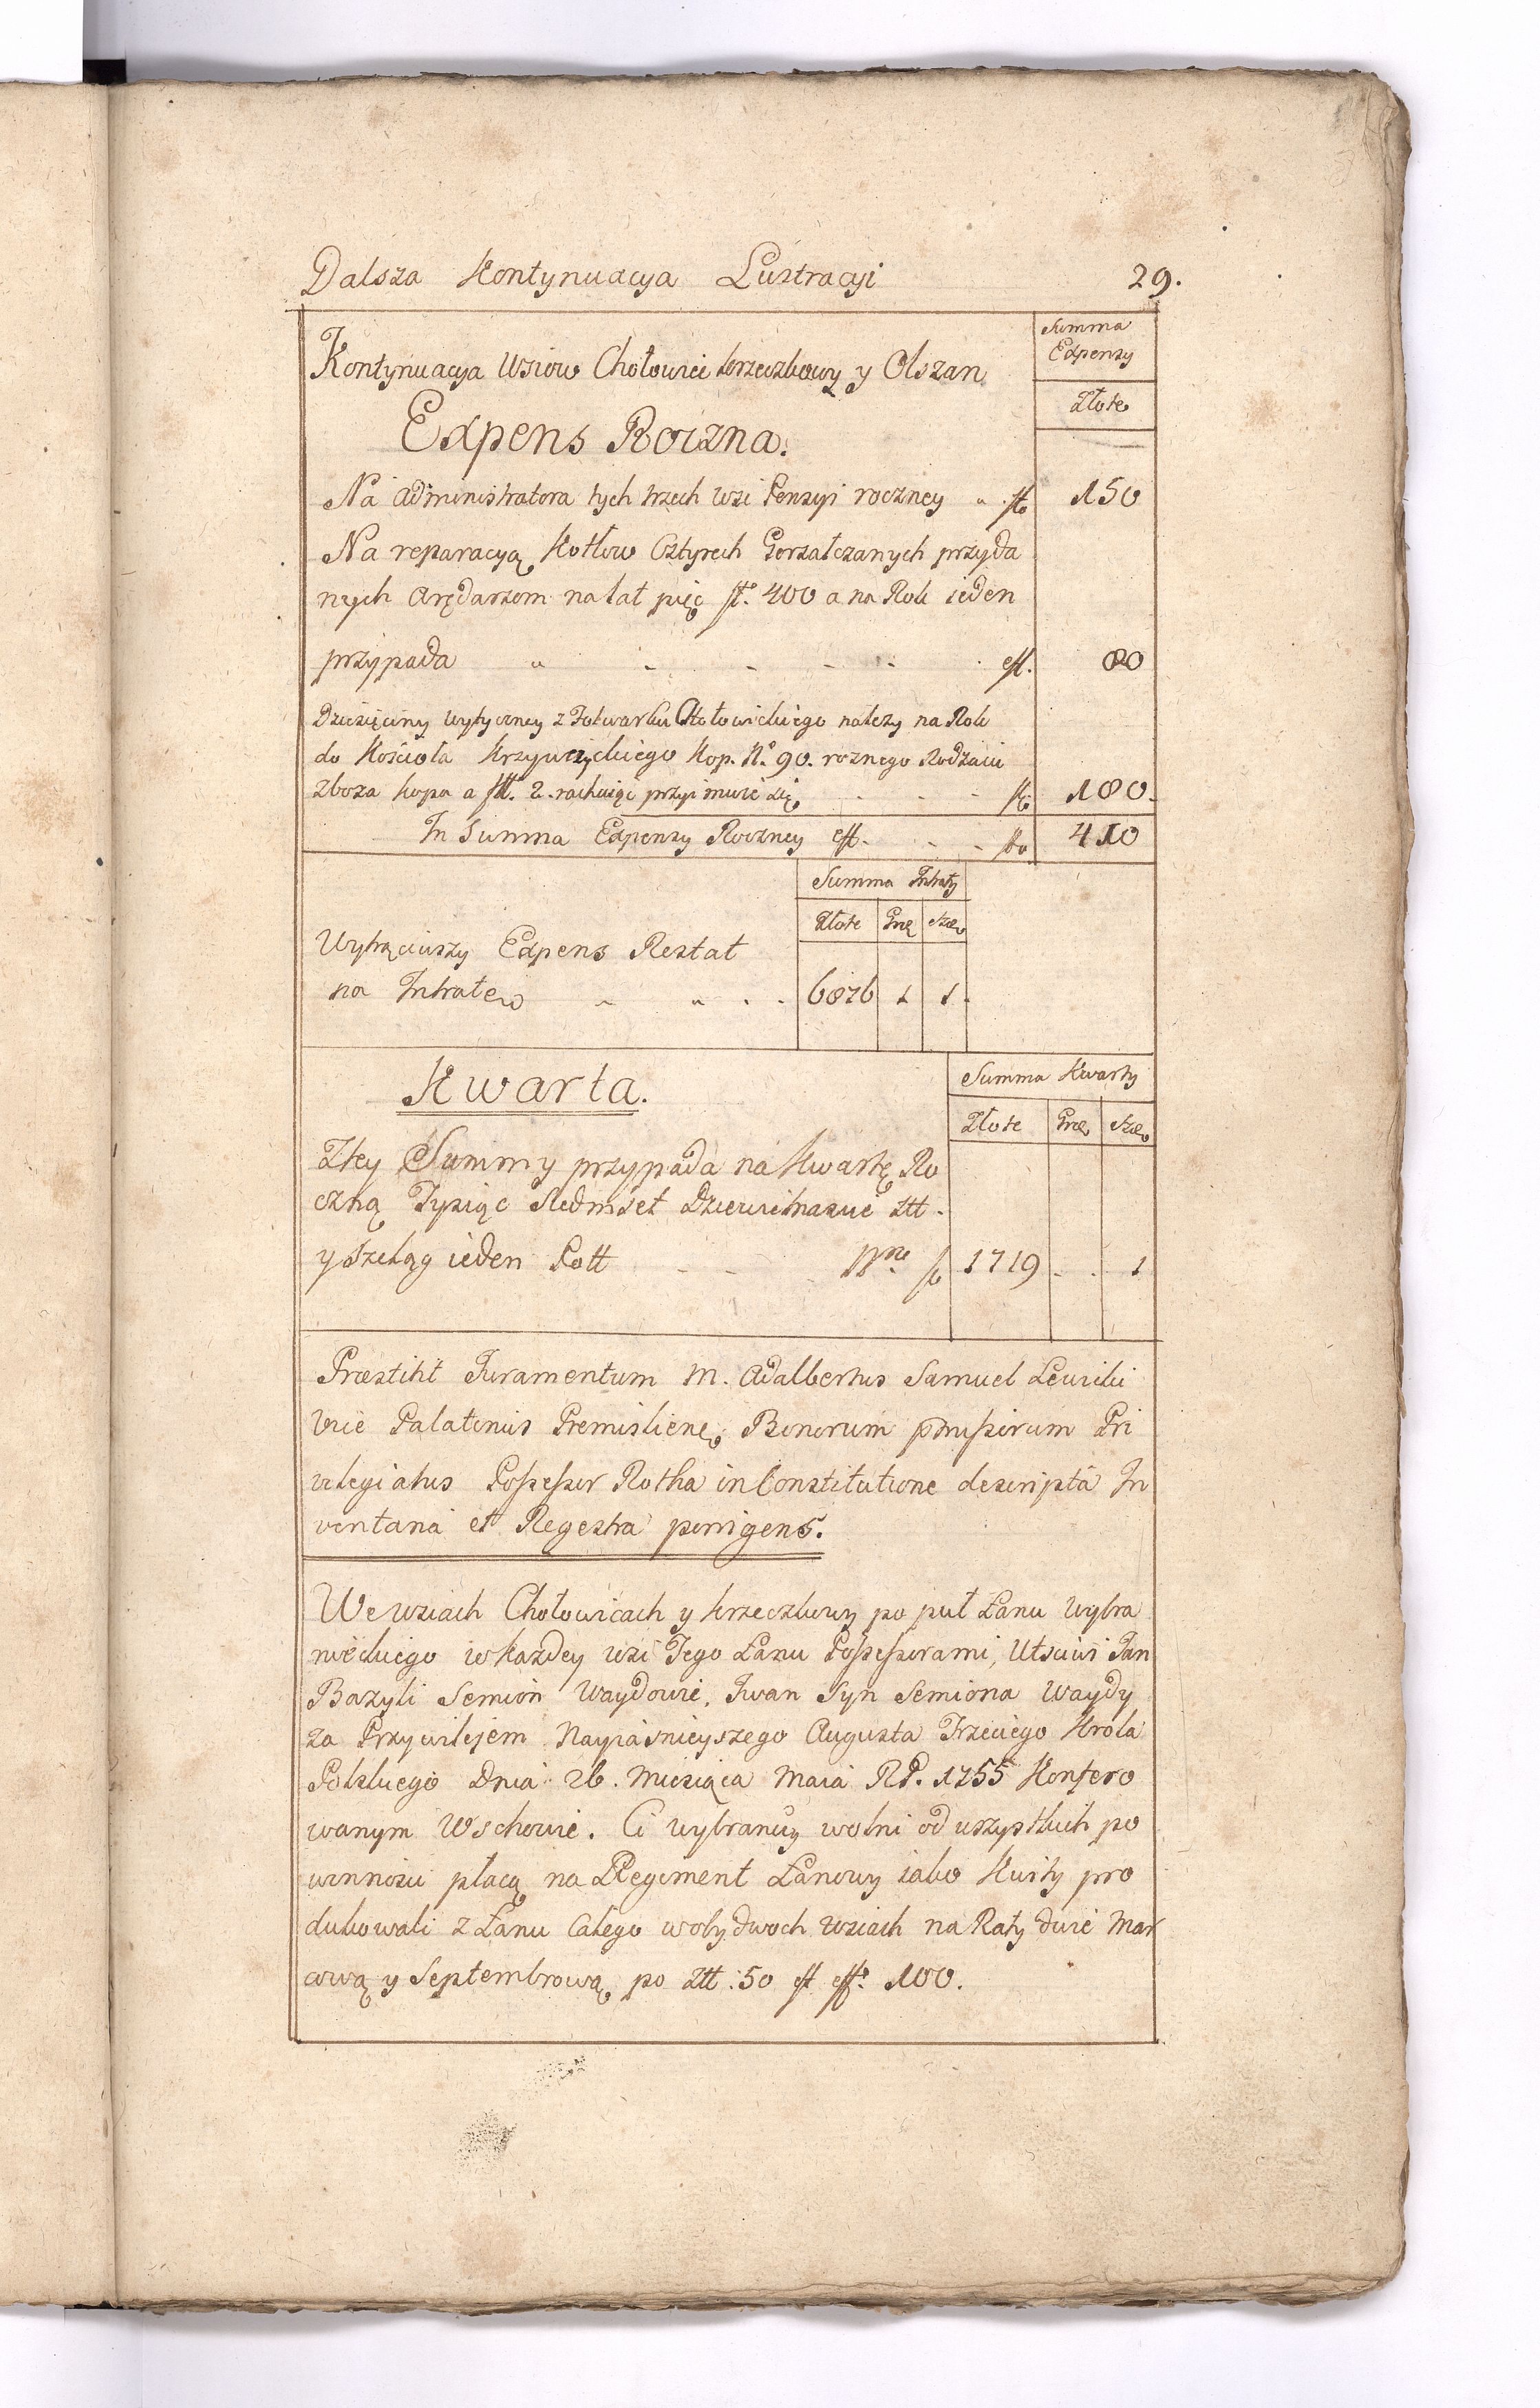 Dalsza Kontynuacya Lustracyi 29.
Summa
Expensy
Złote
Kontynuacya Wsiow Chołowic krzeczkowy y Olszan
Expens Roczna.
Na administratora tych trzech wsi Pensyi roczney 150
Na reparacyą Kotłow Cztyrech Gorzałczanych przyda
nych arędarzom na lat pięć 400 a na Rok ieden
przypada eff. 80
Dziesięciny wytyczney z Folwarku Chołowickiego nalezy na Rok
do Kościoła Krzywczyckiego Kop. No 90. roznego Rodzaiu
zboza kopa a 2. rachuiąc przyimuie się 180.
In Summa Expensy Roczney eff. 410
Summa Intraty
Złote Grę Sze
Wytrąciwszy Expens Restat
na Intratę 6876 1 1
Kwarta.
Summa Kwarty
Złote Gre Sze
Ztey Summy przypada na Kwartę Ro
czną Tysiąc Siedmset Dziewietnascie Ztt.
y Szeląg ieden Poll 1719 . . 1
Præstitit Juramentum M. Adalbertus Samuel Lewicki
Vice Palatinus Premislien Bonorum præmissorum Pri
vilegiatus Possessor Rotha in Constitutione descripta In
ventaria et Regestra porrigens.
We wsiach Chołowicach y krzeczkowy po puł Łanu wybra
nieckiego w kazdey wsi Tego Łanu Possessorami, Utsciwi Jan
Bazyli Semion Waydowie, Iwan Syn Semiona Waydy
za Przywilejem Nayiasnieyszego Augusta Trzeciego Krola
Polskiego Dnia 26. Miesiąca Maia RP. 1755 Konfero
wanym Wschowie. Ci wybrancy wolni od wszystkich po
winnosci płacą na Regiment Łanowy iako Kwity pro
dukowali z Łanu Całego w oby dwoch wsiach na Raty dwie Mar
cową y Septembrową po Ztt. 50 100.